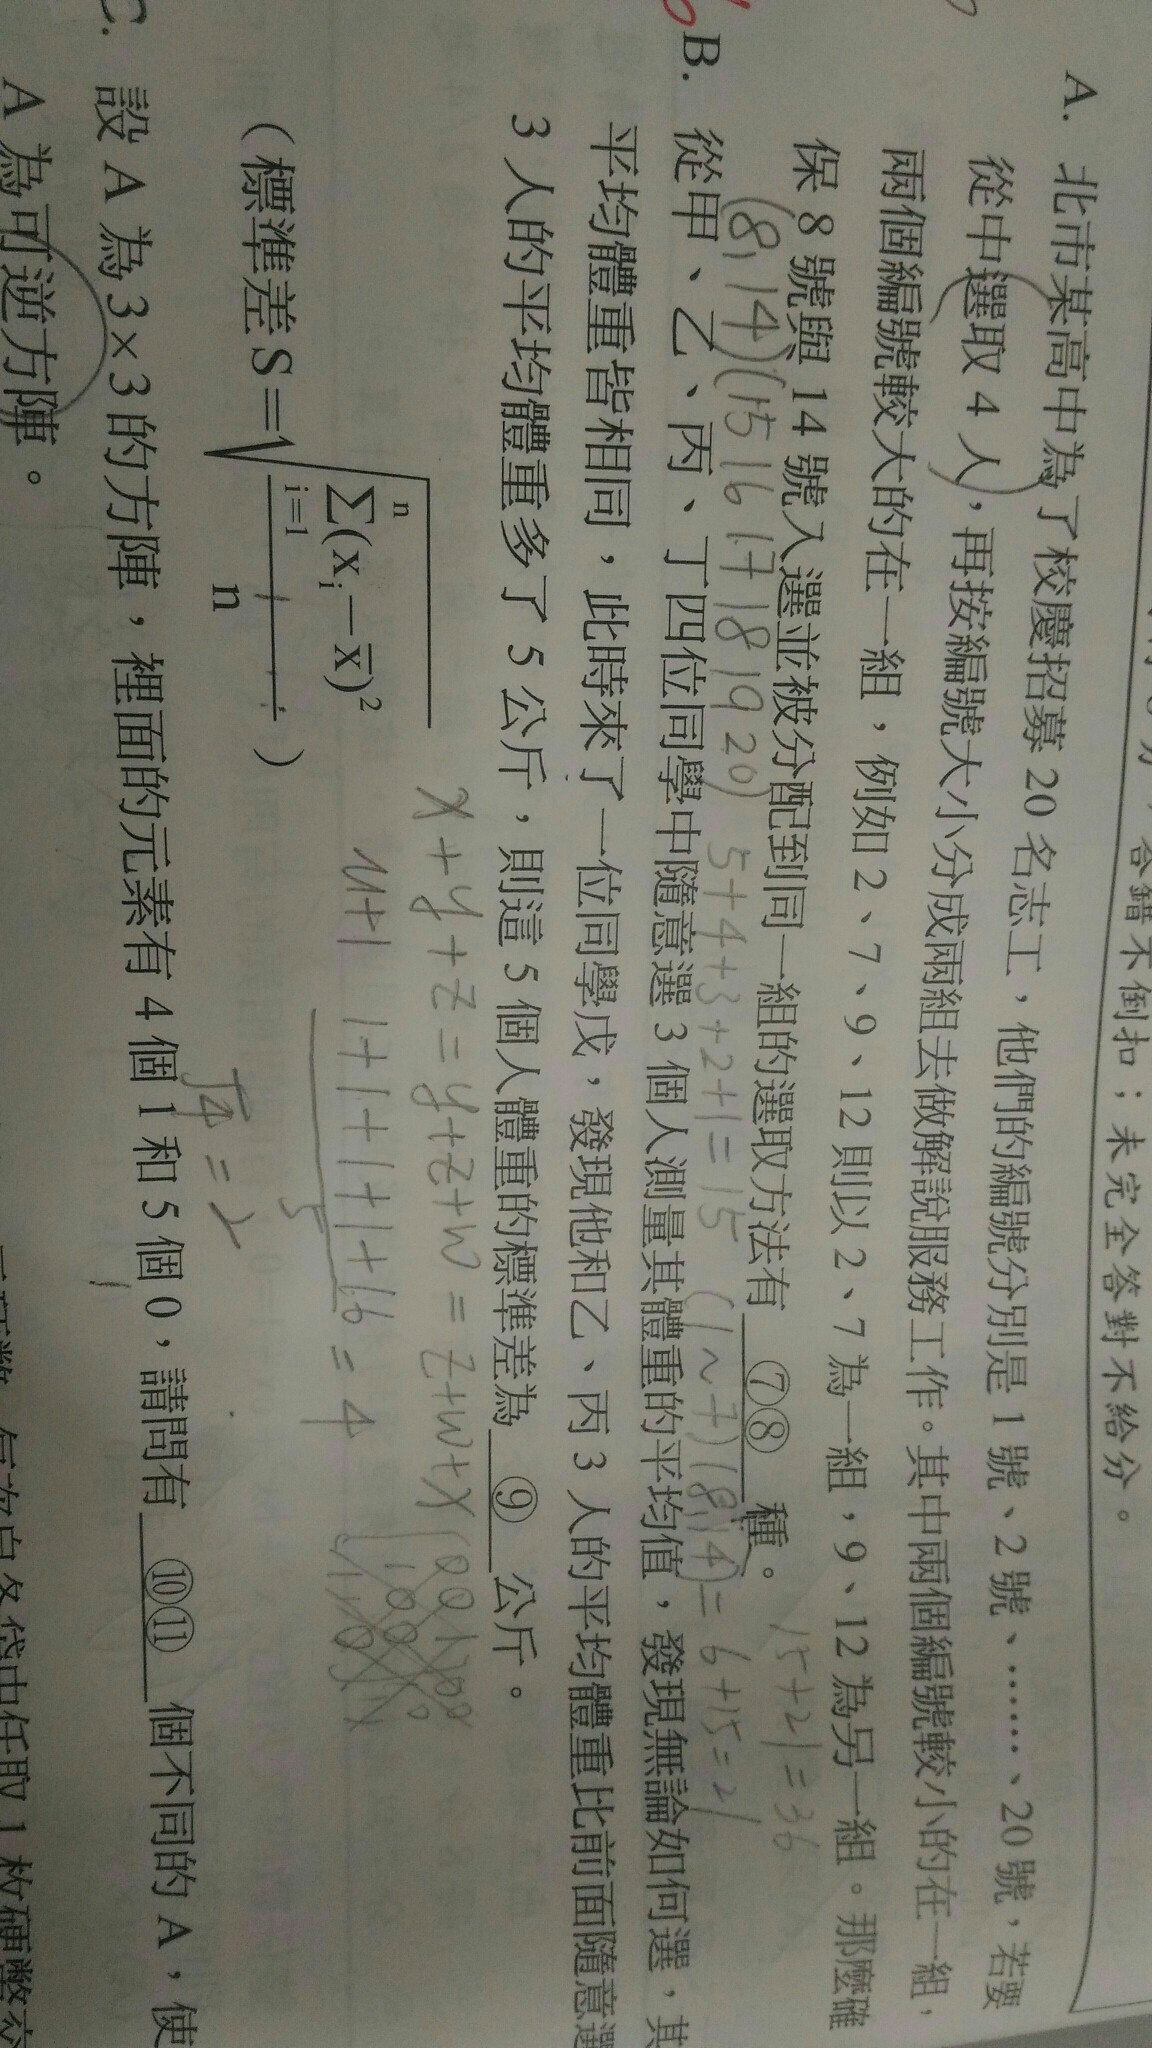 答錯不倒扣；未完全答對不給分。
A. 北市某高中為了校慶招募 20 名志工，他們的編號分別是 1 號、2 號、……、20 號，若要
從中選取 4 人，再按編號大小分成兩組去做解說服務工作。其中兩個編號較小的在一組，
兩個編號較大的在一組，例如 2、7、9、12 則以 2、7 為一組，9、12 為另一組。那麼確
保 8 號與 14 號入選並被分配到同一組的選取方法有 ⑦⑧ 種。
15+21=36
(8,14)(15 16 17 18 19 20) 5+4+3+2+1=15 (1~7)(8,14)=6+15=21
B. 從甲、乙、丙、丁四位同學中隨意選 3 個人測量其體重的平均值，發現無論如何選，其
平均體重皆相同，此時來了一位同學戊，發現他和乙、丙 3 人的平均體重比前面隨意選
3 人的平均體重多了 5 公斤，則這 5 個人體重的標準差為 ⑨ 公斤。
x+y+z=y+z+w=z+w+x
（標準差 S=√(∑(xᵢ−x̄)²/n)）
n
i=1
1+1+1+1+16
5
=4
√4=2
C. 設 A 為 3×3 的方陣，裡面的元素有 4 個 1 和 5 個 0，請問有 ⑩⑪ 個不同的 A，使
A 為可逆方陣。
每次自各袋中任取 1 枚硬幣交